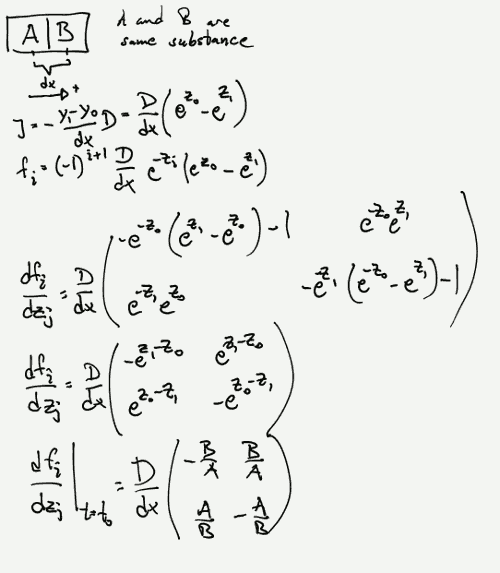 A B
A and B are
same substance
dx
+
J = - (y₁-y₀)/dx D = D/dx (e^{z₀} - e^{z₁})
f_i = (-1)^{i+1} D/dx e^{-z_i} (e^{z₀} - e^{z₁})
df_i/dz_j = D/dx ( -e^{-z₀} (e^{z₁} - e^{z₀}) - 1   e^{-z₀}e^{z₁}
e^{-z₁}e^{z₀}   -e^{-z₁} (e^{-z₀} - e^{z₁}) - 1 )
df_i/dz_j = D/dx ( -e^{z₁-z₀}   e^{z₁-z₀}
e^{z₀-z₁}   -e^{z₀-z₁} )
df_i/dz_j |_{t=t₀} = D/dx ( -B/A   B/A
A/B   -A/B )